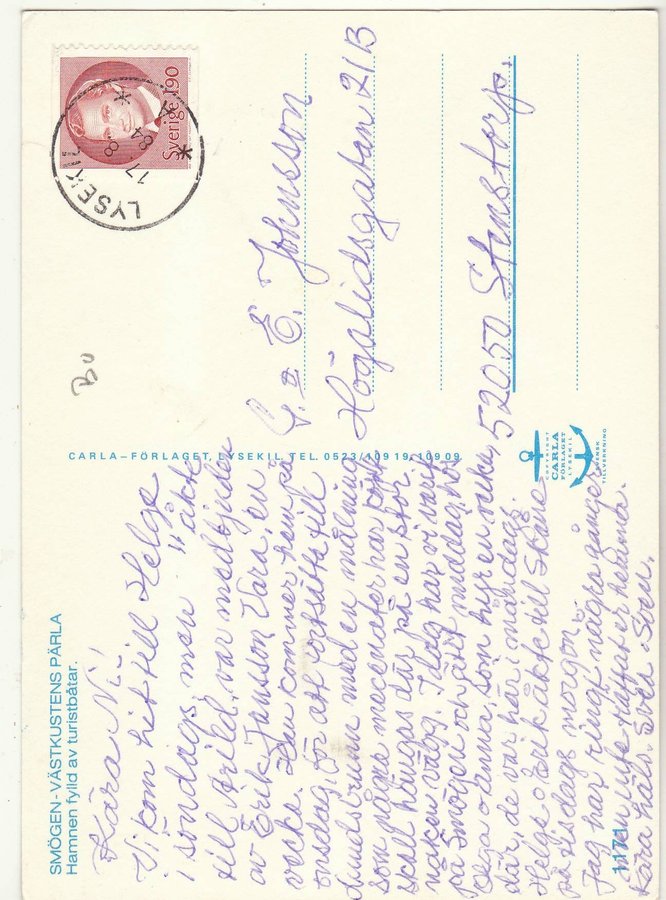 SMÖGEN - VÄSTKUSTENS PÄRLA
Hamnen fylld av turistbåtar.
Kära Ni!
Vi kom hit till Helge
i söndags, men " åkte
till Arild, var medbjuden
av Erik Jansson Vara, en
vecka. Den kommer hem på
onsdag, för att fortsätta till
med en målning
som några mecenater har köpt
skall hängas där på en stor
naken vägg. I dag har vi varit
på Smögen och ätit middag hos
o Anna, som hyr en vecka
där, de var här i måndags.
Helge o Erik åkte till Skåne
på tisdags morgon.
Jag har ringt några gånger
men inte träffat er hemma.
Kära häls. Sven.
11771
CARLA-FÖRLAGET, LYSEKIL. TEL. 0523/109 19, 109 09
COPYRIGHT
CARLA
FÖRLAGET
LYSEKIL
SVENSK
TILLVERKNING
Bo
Sverige 190
LYSEKIL
17 8
84
G. o E. Johnsson
Högalidsgatan 21B
52050 Stenstorp.